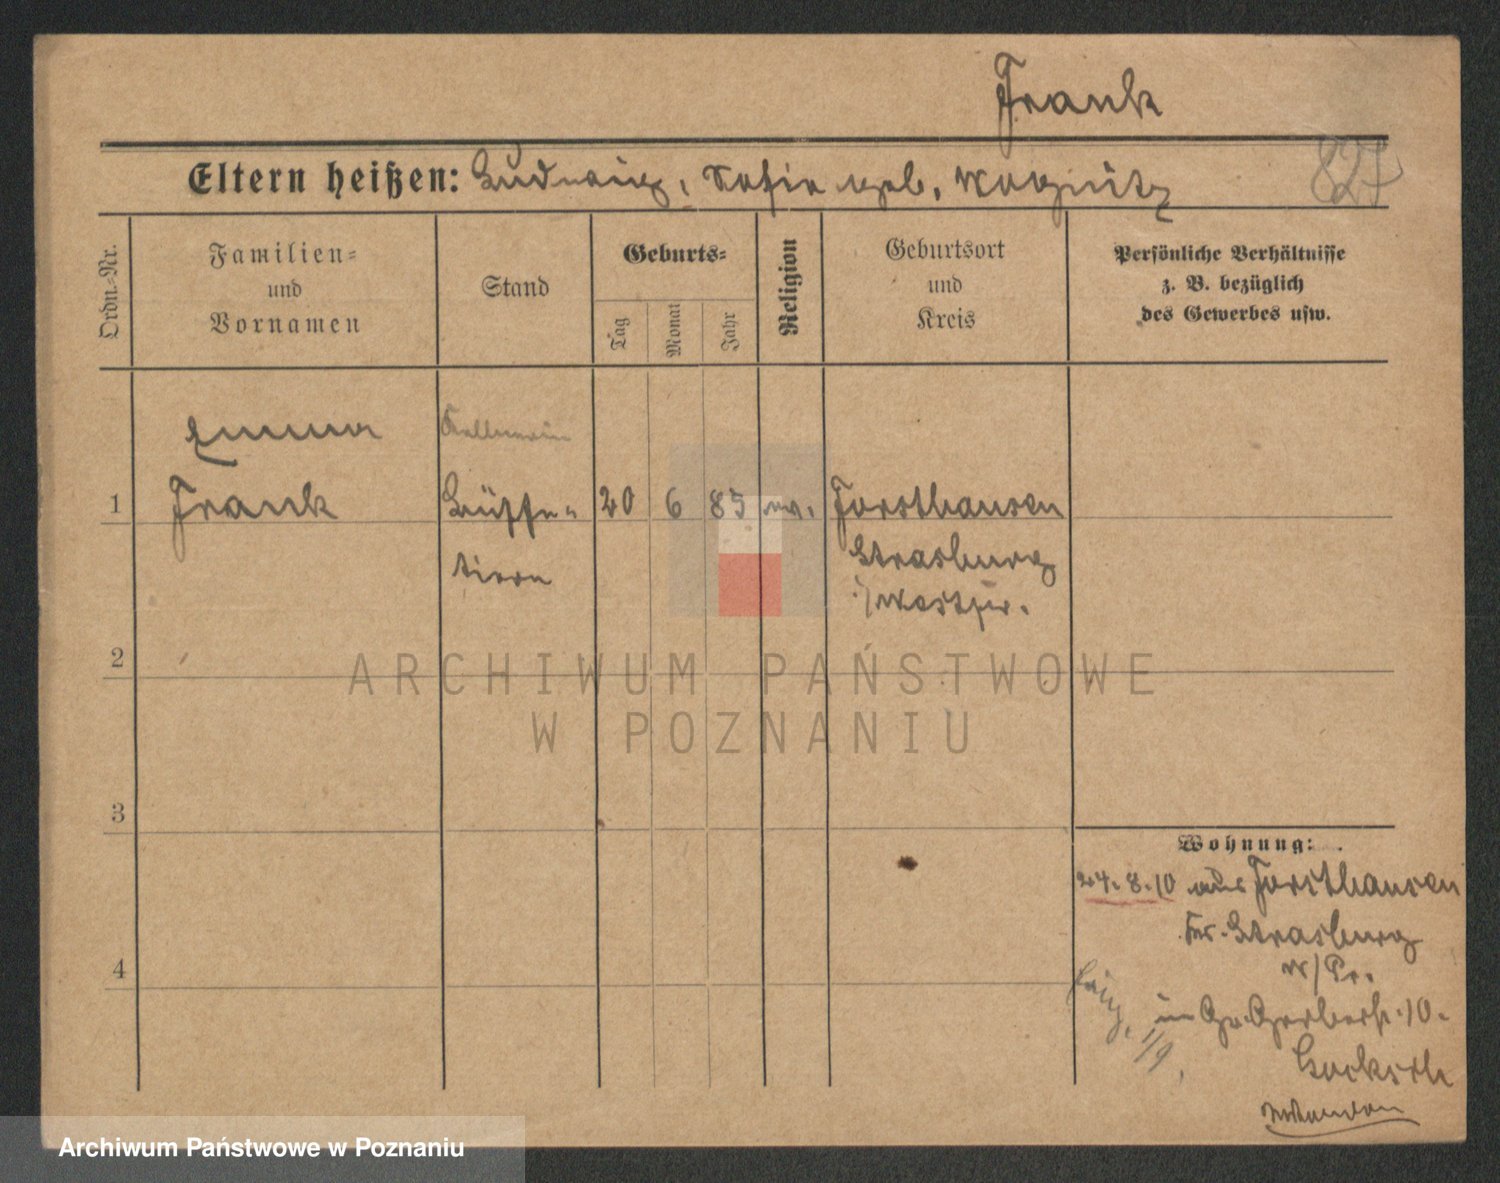 Frank
827
Eltern heißen: Ludwig, Sofie geb.
Ordn.-Nr.
Familien-
und
Vornamen
Stand
Geburts-
Tag
Monat
Jahr
Religion
Geburtsort
und
Kreis
Persönliche Verhältnisse
z. B. bezüglich
des Gewerbes usw.
Emma
Kellnerin
1 Frank Büffe- 20 6 85 ev. Forsthausen
tiern Strasburg
i/Westpr.
2
3
4
Wohnung:
24.8.10 aus Forsthausen
Strasburg
W/Pr.
im Gr. Gerberstr. 10.
1/9.
ARCHIWUM PAŃSTWOWE
W POZNANIU
Archiwum Państwowe w Poznaniu